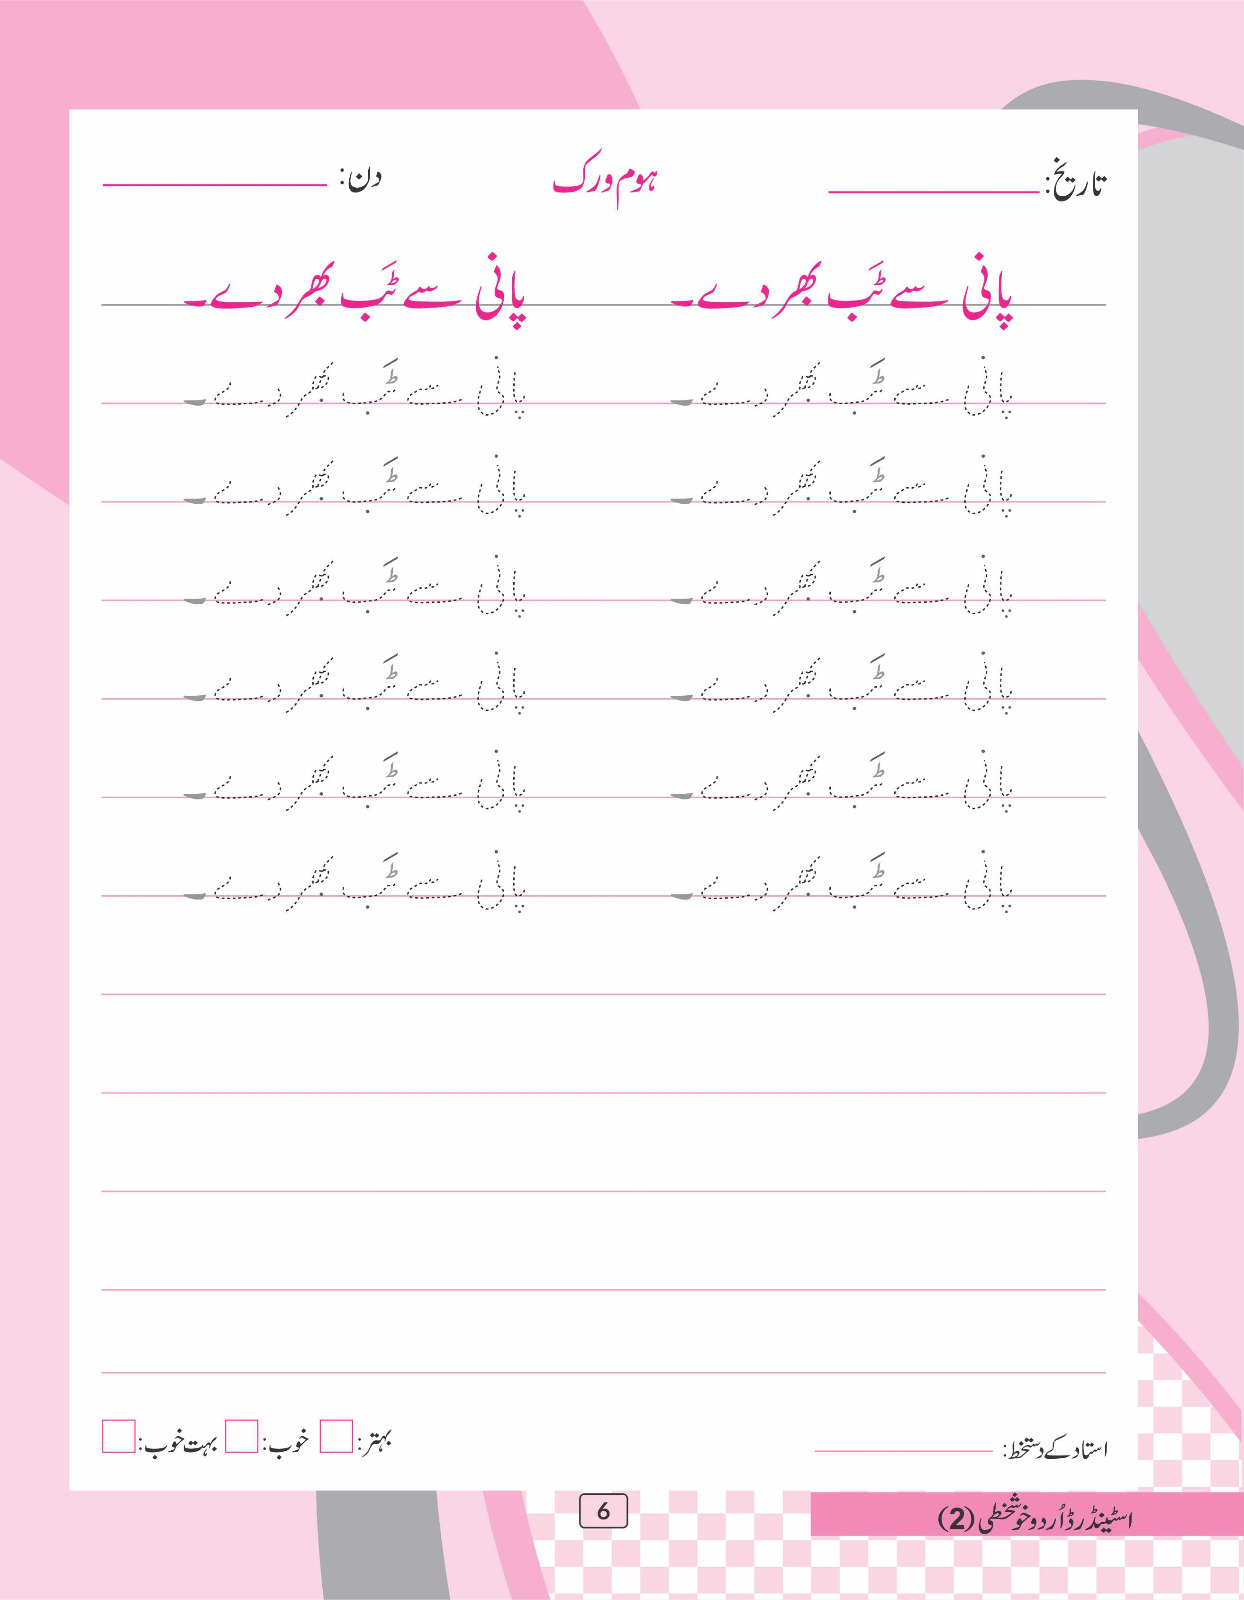 تاریخ: ہوم ورک دن:
پانی سے ٹَب بھر دے۔ پانی سے ٹَب بھر دے۔
پانی سے ٹَب بھر دے۔ پانی سے ٹَب بھر دے۔
پانی سے ٹَب بھر دے۔ پانی سے ٹَب بھر دے۔
پانی سے ٹَب بھر دے۔ پانی سے ٹَب بھر دے۔
پانی سے ٹَب بھر دے۔ پانی سے ٹَب بھر دے۔
پانی سے ٹَب بھر دے۔ پانی سے ٹَب بھر دے۔
پانی سے ٹَب بھر دے۔ پانی سے ٹَب بھر دے۔
استاد کے دستخط: بہتر: خوب: بہت خوب:
اسٹینڈرڈ اُردو خوشخطی (2) 6